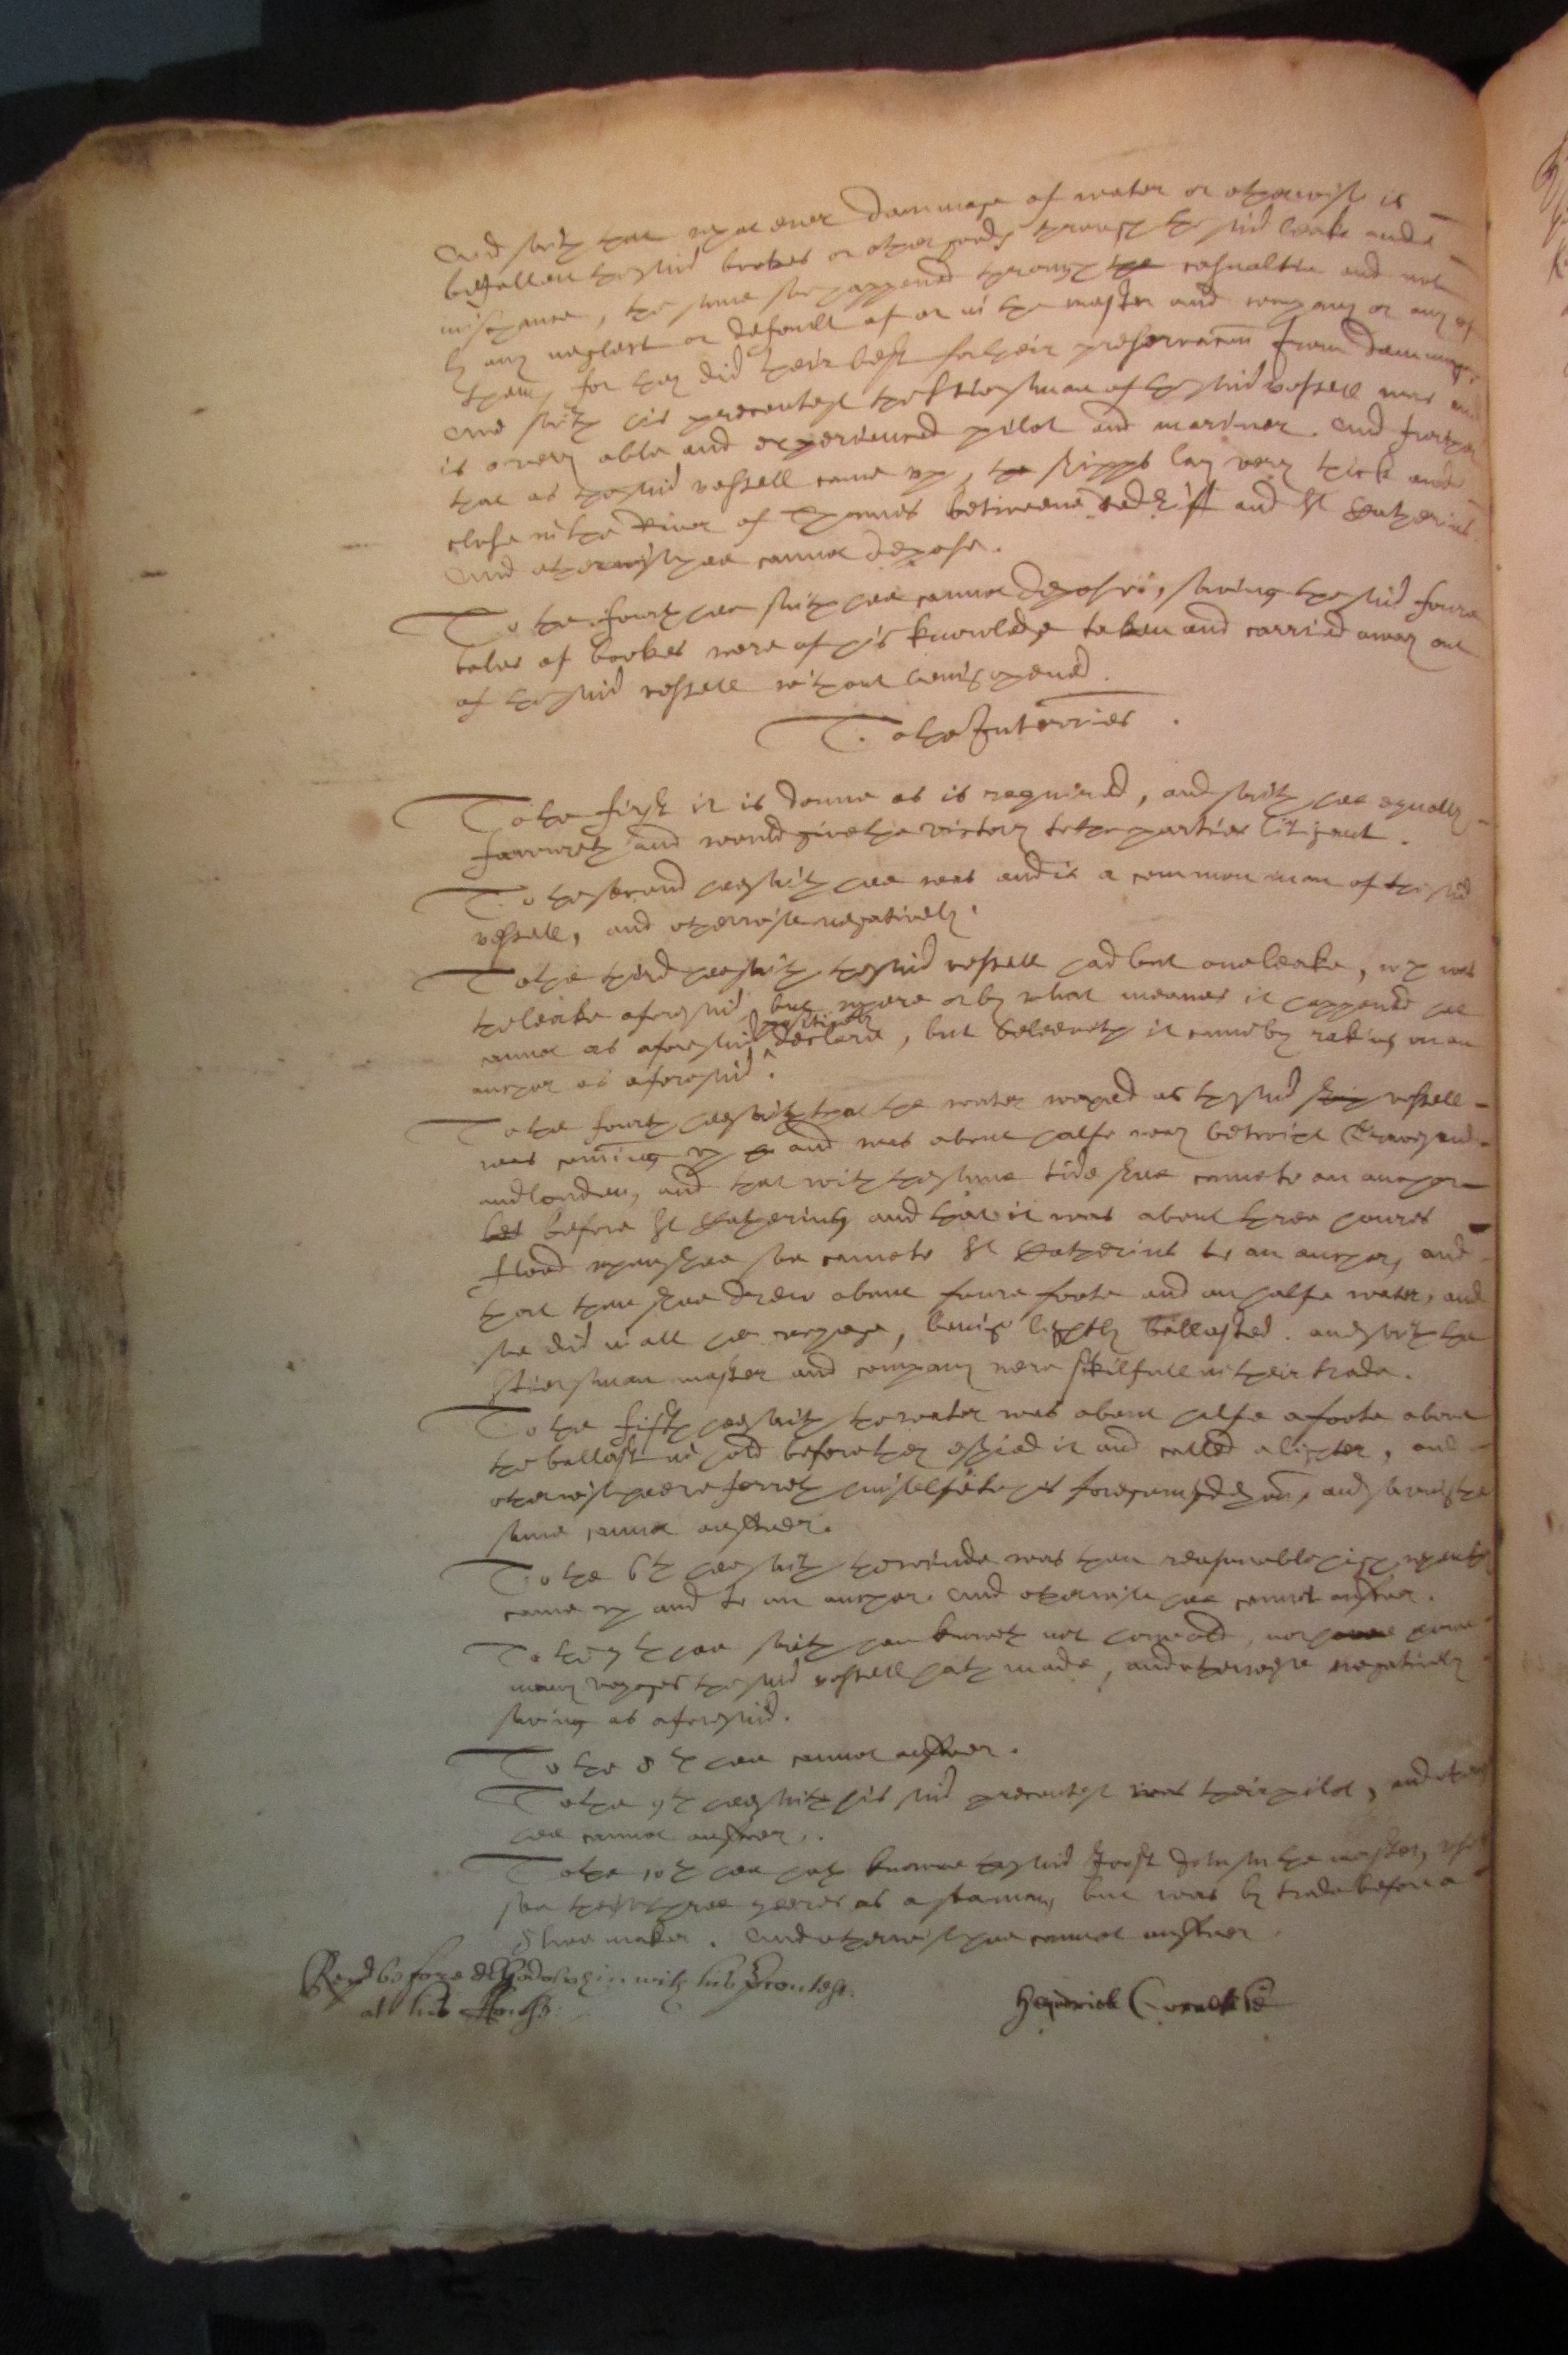 And saith that what ever dammage of water or otherwise is
befallen the said bookes or other goods through the said leake and
mischance, the same soe happened through the casualtie and not
by any neglect or default of or in the master and company or any of
them, for they did their best for their preservacon from dammage
And saith his precontest the stiersman of the said vessell was and
is a very able and experienced pilot and mariner. And further
that as the said vessell came up, the shipps lay very thick and
close in the River of Thames betweene Redriff and St Katherins
And otherwise hee cannot depose.
To the fourth hee saith hee cannot depose, saving the said foure
bales of bookes were of his knowledge taken and carried away out
of the said vessell without being opened.
To the Interries.
To the first it is donne as is required, and saith hee equally
favoureth and would give the victory to the parties litigant.
To the second hee saith hee was and is a common man of the said
vessell, and otherwise negatively.
To the third hee saith the said vessell had but one leake, wch was
the leake aforesaid, but where or by what meanes it happened hee
cannot as aforesaid positively declare, but beleeveth it came by raking on an
anchor as aforesaid.
To the fourth hee saith that the water waxed as the said ship vessell
was coming up and was about halfe way betwixt Gravesend
and london, and that with the same tide shee came to an anchor
before St Katherins, and that it was about three houres
flood when shee soe came to St Katherins to an anchor, and
that then shee drew about foure foote and an halfe water, and
soe did in all her voyage, being lightly ballasted. and saith the
stiersman master and company were skilfull in their trade.
To the fifth hee saith the water was about halfe a foote above
the ballast in hold before they espied it and called a lighter, and
otherwise hee referreth himselfe to his foregoing deposition, and saving the
same cannot answer.
To the 6th hee saith the winde was then reasonable high when they
came up and to an anchor. And otherwise hee cannot answer.
To the 7th hee saith hee knoweth not how old, nor how
many voyages the said vessell hath made, and otherwise negatively
saving as aforesaid.
To the 8th hee cannot answer.
To the 9th hee saith his said precontest was their pilot, and otherwise
hee cannot answer.
To the 10th hee hath knowne the said Joost the master,
three yeeres as a seaman, but was by trade before a
Shoe maker. And otherwise hee cannot answer.
Repd before with his Precontest
at his house.
Hendrick